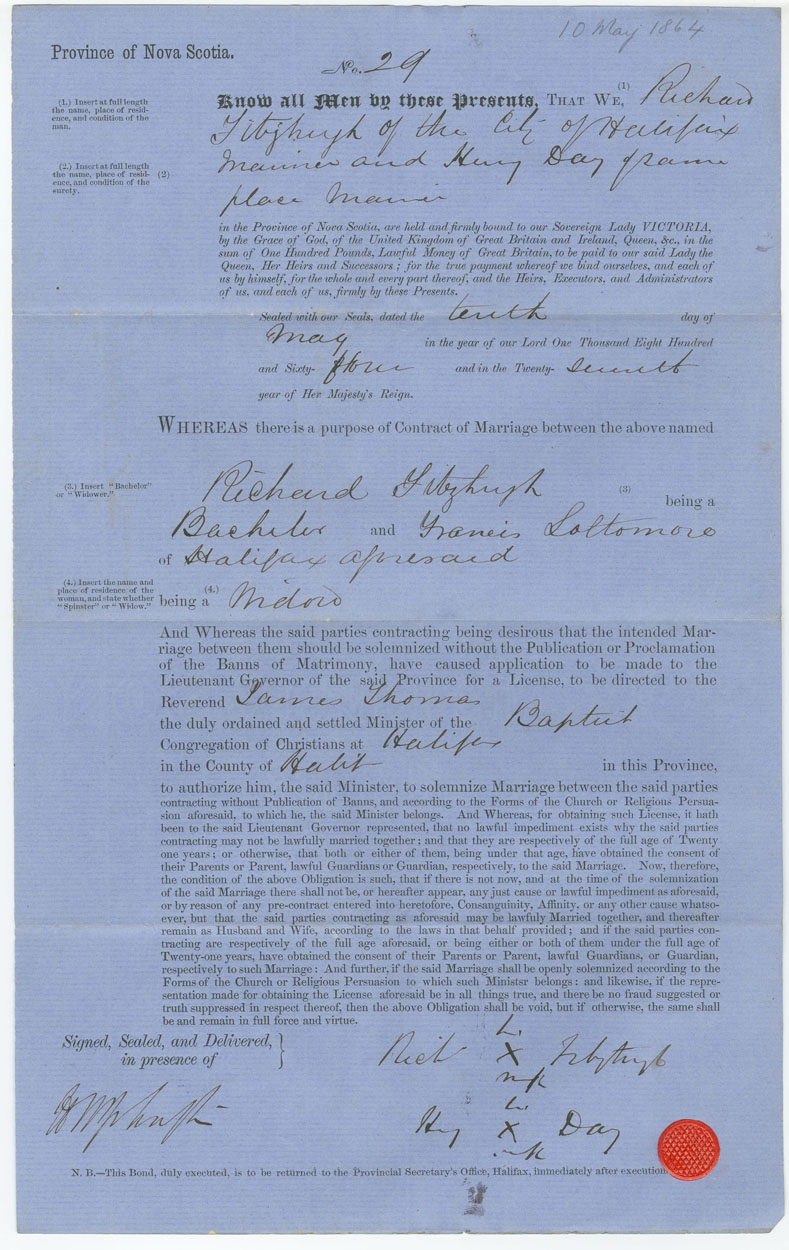 10 May 1864
Province of Nova Scotia.
No. 29
(1.) Insert at full length
the name, place of resid-
ence, and condition of the
man.
Know all Men by these Presents, THAT WE, (1) Richard
Fitzhugh of the City of Halifax
(2.) Insert at full length
the name, place of resid-
ence, and condition of the
surety.
(2) Mariner and Henry Day of same
place Mariner
in the Province of Nova Scotia, are held and firmly bound to our Sovereign Lady VICTORIA,
by the Grace of God, of the United Kingdom of Great Britain and Ireland, Queen, &c., in the
sum of One Hundred Pounds, Lawful Money of Great Britain, to be paid to our said Lady the
Queen, Her Heirs and Successors; for the true payment whereof we bind ourselves, and each of
us by himself, for the whole and every part thereof, and the Heirs, Executors, and Administrators
of us, and each of us, firmly by these Presents.
Sealed with our Seals, dated the tenth day of
May in the year of our Lord One Thousand Eight Hundred
and Sixty- four and in the Twenty- seventh
year of Her Majesty's Reign.
WHEREAS there is a purpose of Contract of Marriage between the above named
(3.) Insert "Bachelor"
or "Widower."
Richard Fitzhugh (3) being a
Bachelor and Francis Soltomore
of Halifax aforesaid
(4.) Insert the name and
place of residence of the
woman, and state whether
"Spinster" or "Widow."
being a (4.) Widow
And Whereas the said parties contracting being desirous that the intended Mar-
riage between them should be solemnized without the Publication or Proclamation
of the Banns of Matrimony, have caused application to be made to the
Lieutenant Governor of the said Province for a License, to be directed to the
Reverend James Thomas
the duly ordained and settled Minister of the Baptist
Congregation of Christians at Halifax
in the County of Halif in this Province,
to authorize him, the said Minister, to solemnize Marriage between the said parties
contracting without Publication of Banns, and according to the Forms of the Church or Religious Persua-
sion aforesaid, to which he, the said Minister belongs. And Whereas, for obtaining such License, it hath
been to the said Lieutenant Governor represented, that no lawful impediment exists why the said parties
contracting may not be lawfully married together; and that they are respectively of the full age of Twenty
one years; or otherwise, that both or either of them, being under that age, have obtained the consent of
their Parents or Parent, lawful Guardians or Guardian, respectively, to the said Marriage. Now, therefore,
the condition of the above Obligation is such, that if there is not now, and at the time of the solemnization
of the said Marriage there shall not be, or hereafter appear, any just cause or lawful impediment as aforesaid,
or by reason of any pre-contract entered into heretofore, Consanguinity, Affinity, or any other cause whatso-
ever, but that the said parties contracting as aforesaid may be lawfuly Married together, and thereafter
remain as Husband and Wife, according to the laws in that behalf provided; and if the said parties con-
tracting are respectively of the full age aforesaid, or being either or both of them under the full age of
Twenty-one years, have obtained the consent of their Parents or Parent, lawful Guardians, or Guardian,
respectively to such Marriage: And further, if the said Marriage shall be openly solemnized according to the
Forms of the Church or Religious Persuasion to which such Minister belongs: and likewise, if the repre-
sentation made for obtaining the License aforesaid be in all things true, and there be no fraud suggested or
truth suppressed in respect thereof, then the above Obligation shall be void, but if otherwise, the same shall
be and remain in full force and virtue.
Signed, Sealed, and Delivered,
in presence of
h.
Rich X Fitzhugh
mk
h.
Hy X Day
mk
N. B.—This Bond, duly executed, is to be returned to the Provincial Secretary's Office, Halifax, immediately after execution.